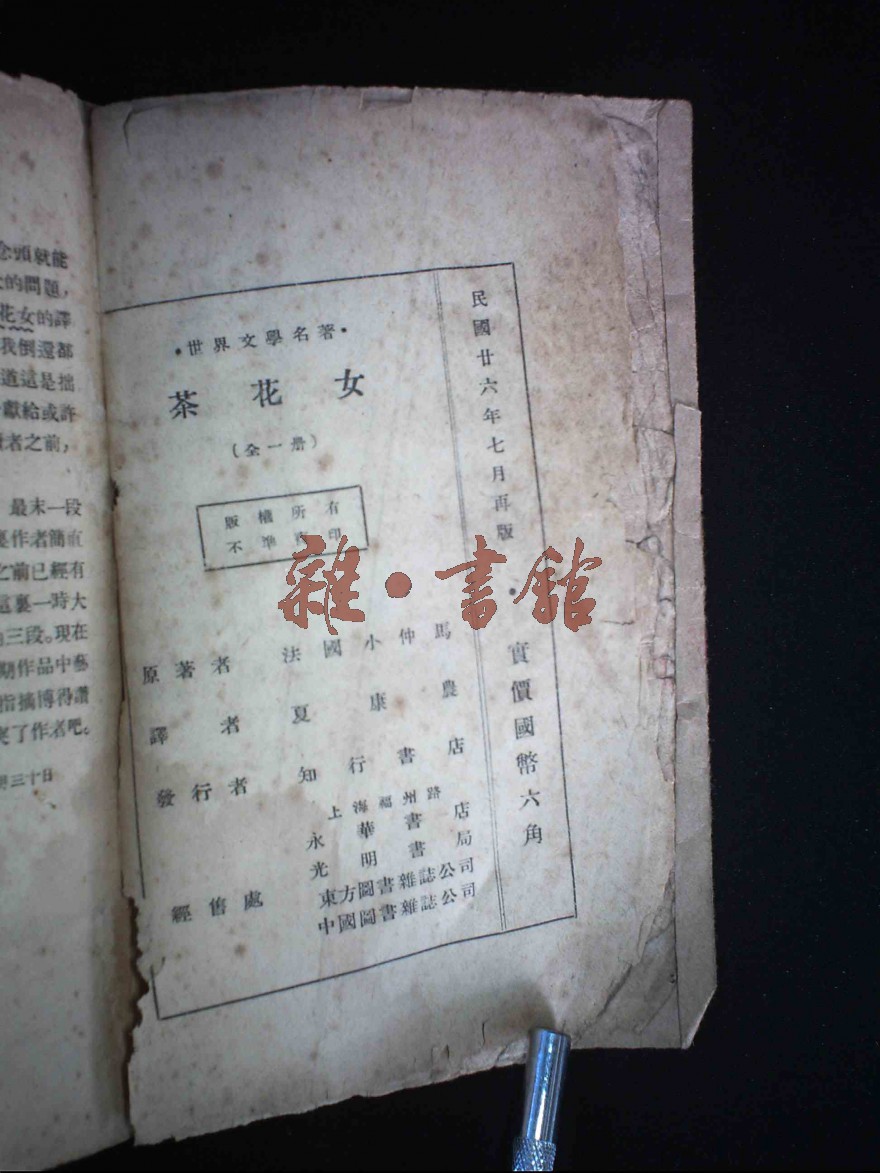 念頭就能
的問題,
花女的譯
我倒還都
道這是拙
獻給或許
者之前,
最末一段
作者簡直
之前已經有
這裏一時大
三段。現在
期作品中藝
指摘博得讚
了作者吧。
三十日
民國廿六年七月再版
實價國幣六角
•世界文學名著•
茶花女
(全一册)
版權所有
不準翻印
雜•書館
原著者 法國小仲馬
譯者 夏康農
發行者 知行書店
上海福州路
經售處
永華書店
光明書局
東方圖書雜誌公司
中國圖書雜誌公司